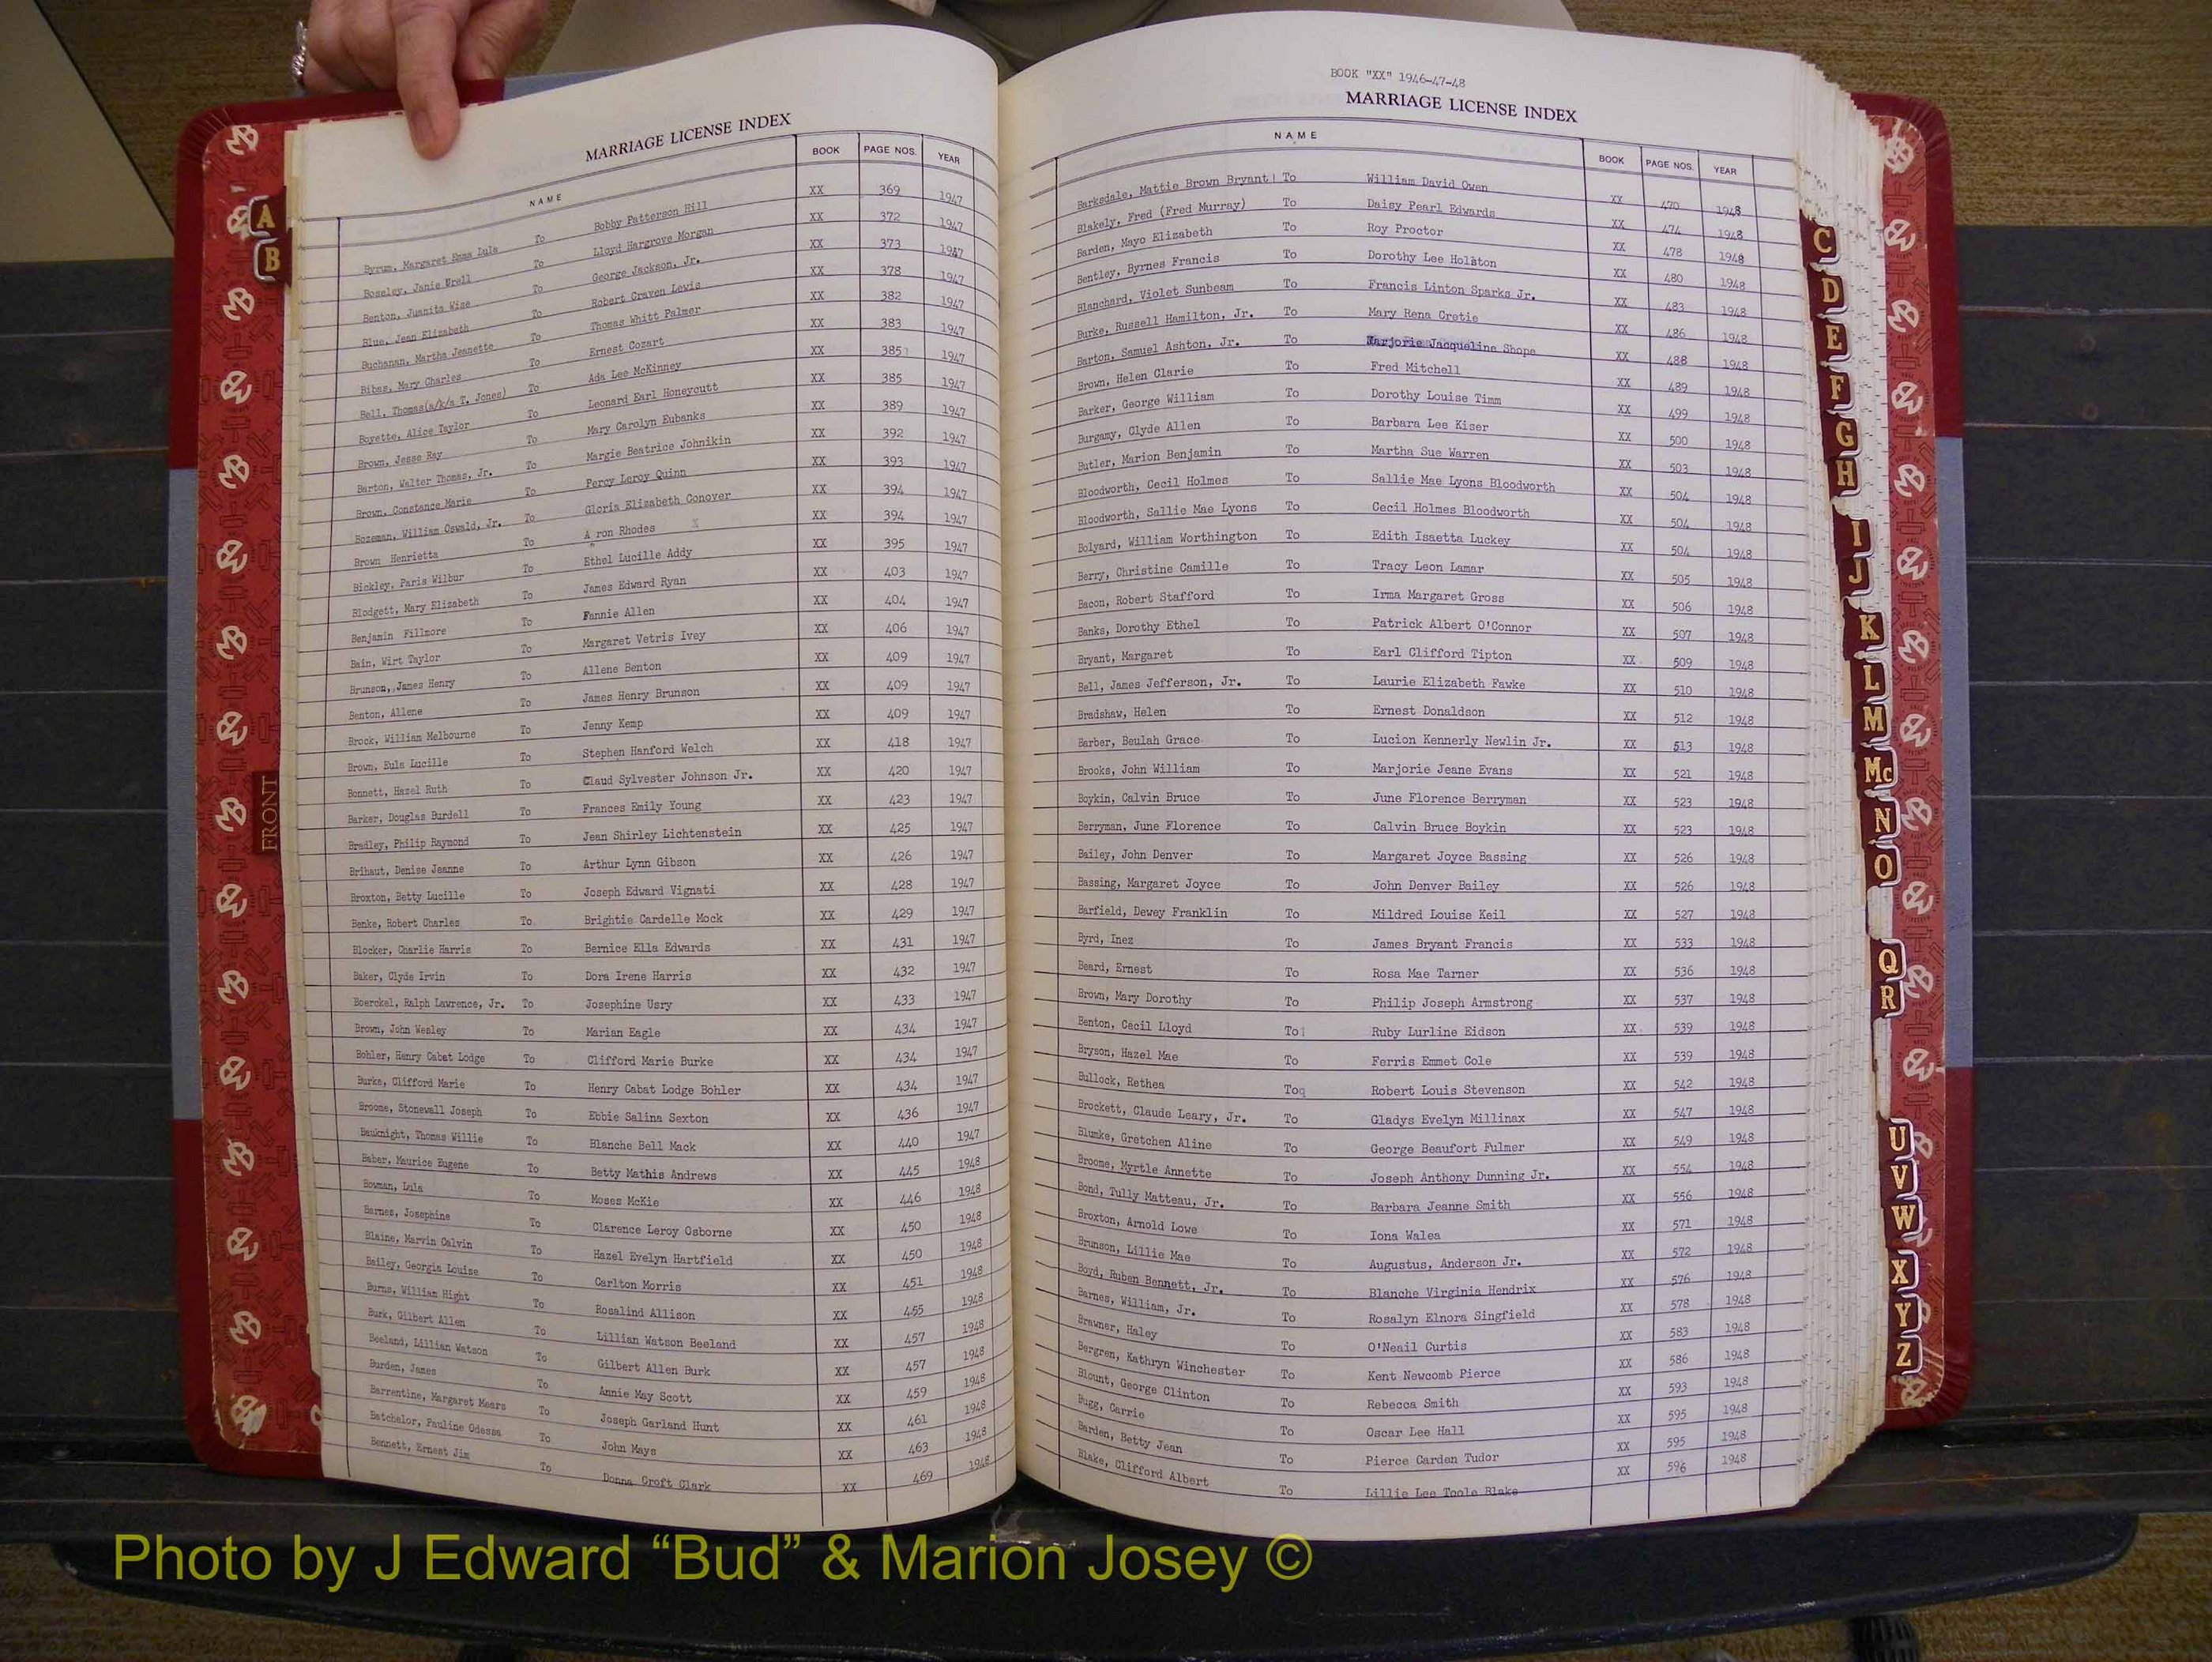 MARRIAGE LICENSE INDEX
NAME BOOK PAGE NOS. YEAR
Byrum, Margaret Emma Lula To Bobby Patterson Hill XX 369 1947
Boseley, Janie Urell To Lloyd Hargrove Morgan XX 372 1947
Benton, Juanita Wise To George Jackson, Jr. XX 373 1947
Blue, Jean Elizabeth To Robert Craven Lewis XX 378 1947
Buchanan, Martha Jeanette To Thomas Whitt Palmer XX 382 1947
Bibas, Mary Charles To Ernest Cozart XX 383 1947
Bell, Thomas(a/k/a T. Jones) To Ada Lee McKinney XX 385 1947
Boyette, Alice Taylor To Leonard Earl Honeycutt XX 385 1947
Brown, Jesse Ray To Mary Carolyn Eubanks XX 389 1947
Barton, Walter Thomas, Jr. To Margie Beatrice Johnikin XX 392 1947
Brown, Constance Marie To Percy Leroy Quinn XX 393 1947
Bozeman, William Oswald, Jr. To Gloria Elizabeth Conover XX 394 1947
Brown Henrietta To A ron Rhodes XX 394 1947
Bickley, Paris Wilbur To Ethel Lucille Addy XX 395 1947
Blodgett, Mary Elizabeth To James Edward Ryan XX 403 1947
Benjamin Fillmore To Fannie Allen XX 404 1947
Bain, Wirt Taylor To Margaret Vetris Ivey XX 406 1947
Brunson, James Henry To Allene Benton XX 409 1947
Benton, Allene To James Henry Brunson XX 409 1947
Brock, William Melbourne To Jenny Kemp XX 409 1947
Brown, Eula Lucille To Stephen Hanford Welch XX 418 1947
Bonnett, Hazel Ruth To Claud Sylvester Johnson Jr. XX 420 1947
Barker, Douglas Burdell To Frances Emily Young XX 423 1947
Bradley, Philip Raymond To Jean Shirley Lichtenstein XX 425 1947
Brihaut, Denise Jeanne To Arthur Lynn Gibson XX 426 1947
Broxton, Betty Lucille To Joseph Edward Vignati XX 428 1947
Benke, Robert Charles To Brightie Cardelle Mock XX 429 1947
Blocker, Charlie Harris To Bernice Ella Edwards XX 431 1947
Baker, Clyde Irvin To Dora Irene Harris XX 432 1947
Boerckel, Ralph Lawrence, Jr. To Josephine Usry XX 433 1947
Brown, John Wesley To Marian Eagle XX 434 1947
Bohler, Henry Cabat Lodge To Clifford Marie Burke XX 434 1947
Burke, Clifford Marie To Henry Cabat Lodge Bohler XX 434 1947
Broome, Stonewall Joseph To Ebbie Salina Sexton XX 436 1947
Bauknight, Thomas Willie To Blanche Bell Mack XX 440 1947
Baber, Maurice Eugene To Betty Mathis Andrews XX 445 1948
Bowman, Lula To Moses McKie XX 446 1948
Barnes, Josephine To Clarence Leroy Osborne XX 450 1948
Blaine, Marvin Calvin To Hazel Evelyn Hartfield XX 450 1948
Bailey, Georgia Louise To Carlton Morris XX 451 1948
Burns, William Hight To Rosalind Allison XX 455 1948
Burk, Gilbert Allen To Lillian Watson Beeland XX 457 1948
Beeland, Lillian Watson To Gilbert Allen Burk XX 457 1948
Burden, James To Annie May Scott XX 459 1948
Barrentine, Margaret Mears To Joseph Garland Hunt XX 461 1948
Batchelor, Pauline Odessa To John Mays XX 463 1948
Bennett, Ernest Jim To Donna Croft Clark XX 469 1948
BOOK "XX" 1946-47-48
MARRIAGE LICENSE INDEX
NAME BOOK PAGE NOS. YEAR
Barksdale, Mattie Brown Bryant To William David Owen XX 470 1948
Blakely, Fred (Fred Murray) To Daisy Pearl Edwards XX 474 1948
Barden, Mayo Elizabeth To Roy Proctor XX 478 1948
Bentley, Byrnes Francis To Dorothy Lee Holston XX 480 1948
Blanchard, Violet Sunbeam To Francis Linton Sparks Jr. XX 483 1948
Burke, Russell Hamilton, Jr. To Mary Rena Cretie XX 486 1948
Barton, Samuel Ashton, Jr. To Marjorie Jacqueline Shope XX 488 1948
Brown, Helen Clarie To Fred Mitchell XX 489 1948
Barker, George William To Dorothy Louise Timm XX 499 1948
Burgamy, Clyde Allen To Barbara Lee Kiser XX 500 1948
Butler, Marion Benjamin To Martha Sue Warren XX 503 1948
Bloodworth, Cecil Holmes To Sallie Mae Lyons Bloodworth XX 504 1948
Bloodworth, Sallie Mae Lyons To Cecil Holmes Bloodworth XX 504 1948
Bolyard, William Worthington To Edith Isaetta Luckey XX 504 1948
Berry, Christine Camille To Tracy Leon Lamar XX 505 1948
Bacon, Robert Stafford To Irma Margaret Gross XX 506 1948
Banks, Dorothy Ethel To Patrick Albert O'Connor XX 507 1948
Bryant, Margaret To Earl Clifford Tipton XX 509 1948
Bell, James Jefferson, Jr. To Laurie Elizabeth Fawke XX 510 1948
Bradshaw, Helen To Ernest Donaldson XX 512 1948
Barber, Beulah Grace To Lucion Kennerly Newlin Jr. XX 513 1948
Brooks, John William To Marjorie Jeane Evans XX 521 1948
Boykin, Calvin Bruce To June Florence Berryman XX 523 1948
Berryman, June Florence To Calvin Bruce Boykin XX 523 1948
Bailey, John Denver To Margaret Joyce Bassing XX 526 1948
Bassing, Margaret Joyce To John Denver Bailey XX 526 1948
Barfield, Dewey Franklin To Mildred Louise Keil XX 527 1948
Byrd, Inez To James Bryant Francis XX 533 1948
Beard, Ernest To Rosa Mae Tarner XX 536 1948
Brown, Mary Dorothy To Philip Joseph Armstrong XX 537 1948
Benton, Cecil Lloyd To Ruby Lurline Eidson XX 539 1948
Bryson, Hazel Mae To Ferris Emmet Cole XX 539 1948
Bullock, Rethea Toq Robert Louis Stevenson XX 542 1948
Brockett, Claude Leary, Jr. To Gladys Evelyn Millinax XX 547 1948
Blumke, Gretchen Aline To George Beaufort Fulmer XX 549 1948
Broome, Myrtle Annette To Joseph Anthony Dunning Jr. XX 554 1948
Bond, Tully Matteau, Jr. To Barbara Jeanne Smith XX 556 1948
Broxton, Arnold Lowe To Iona Walea XX 571 1948
Brunson, Lillie Mae To Augustus, Anderson Jr. XX 572 1948
Boyd, Ruben Bennett, Jr. To Blanche Virginia Hendrix XX 576 1948
Barnes, William, Jr. To Rosalyn Elnora Singfield XX 578 1948
Brawner, Haley To O'Neail Curtis XX 583 1948
Bergren, Kathryn Winchester To Kent Newcomb Pierce XX 586 1948
Blount, George Clinton To Rebecca Smith XX 593 1948
Bugg, Carrie To Oscar Lee Hall XX 595 1948
Barden, Betty Jean To Pierce Carden Tudor XX 595 1948
Blake, Clifford Albert To Lillie Lee Toole Blake XX 596 1948
A
B
FRONT
C
D
E
F
G
H
I
J
K
L
M
Mc
N
O
Q
R
U
V
W
X
Y
Z
Photo by J Edward “Bud” & Marion Josey ©